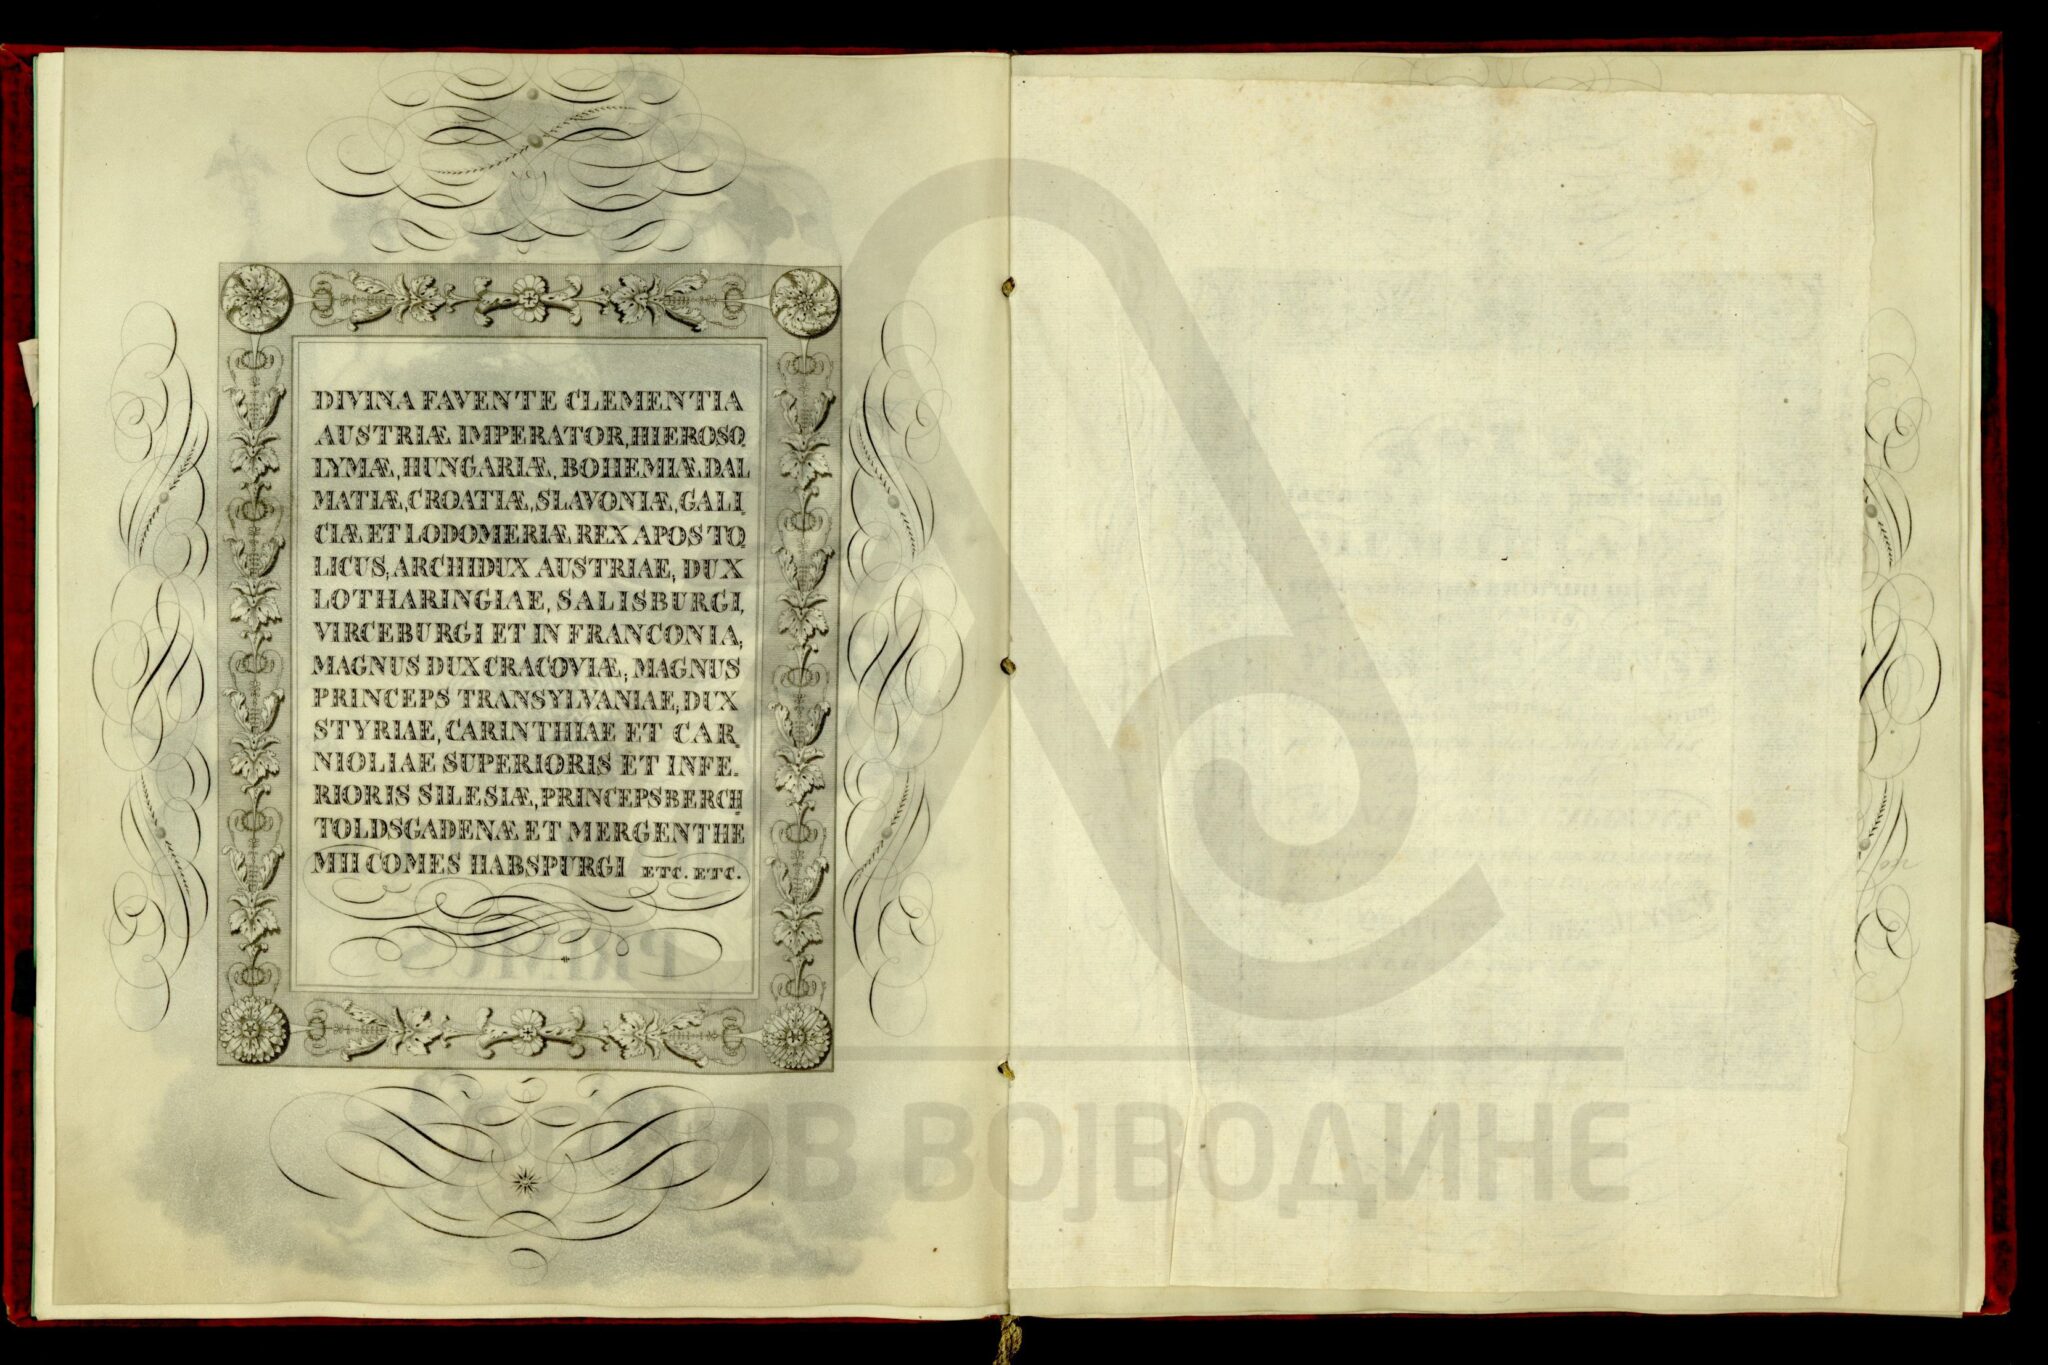 DIVINA FAVENTE CLEMENTIA
AUSTRIÆ IMPERATOR, HIEROSO
LYMÆ, HUNGARIÆ, BOHEMIÆ, DAL
MATIÆ, CROATIÆ, SLAVONIÆ, GALI
CIÆ ET LODOMERIÆ REX APOSTO
LICUS, ARCHIDUX AUSTRIAE, DUX
LOTHARINGIAE, SALISBURGI,
VIRCEBURGI ET IN FRANCONIA,
MAGNUS DUX CRACOVIÆ, MAGNUS
PRINCEPS TRANSYLVANIAE, DUX
STYRIAE, CARINTHIAE ET CAR
NIOLIAE SUPERIORIS ET INFE.
RIORIS SILESIÆ, PRINCEPS BERCH
TOLDSGADENÆ ET MERGENTHE
MII COMES HABSPURGI ETC. ETC.
PRIMUS
АРХИВ ВОЈВОДИНЕ